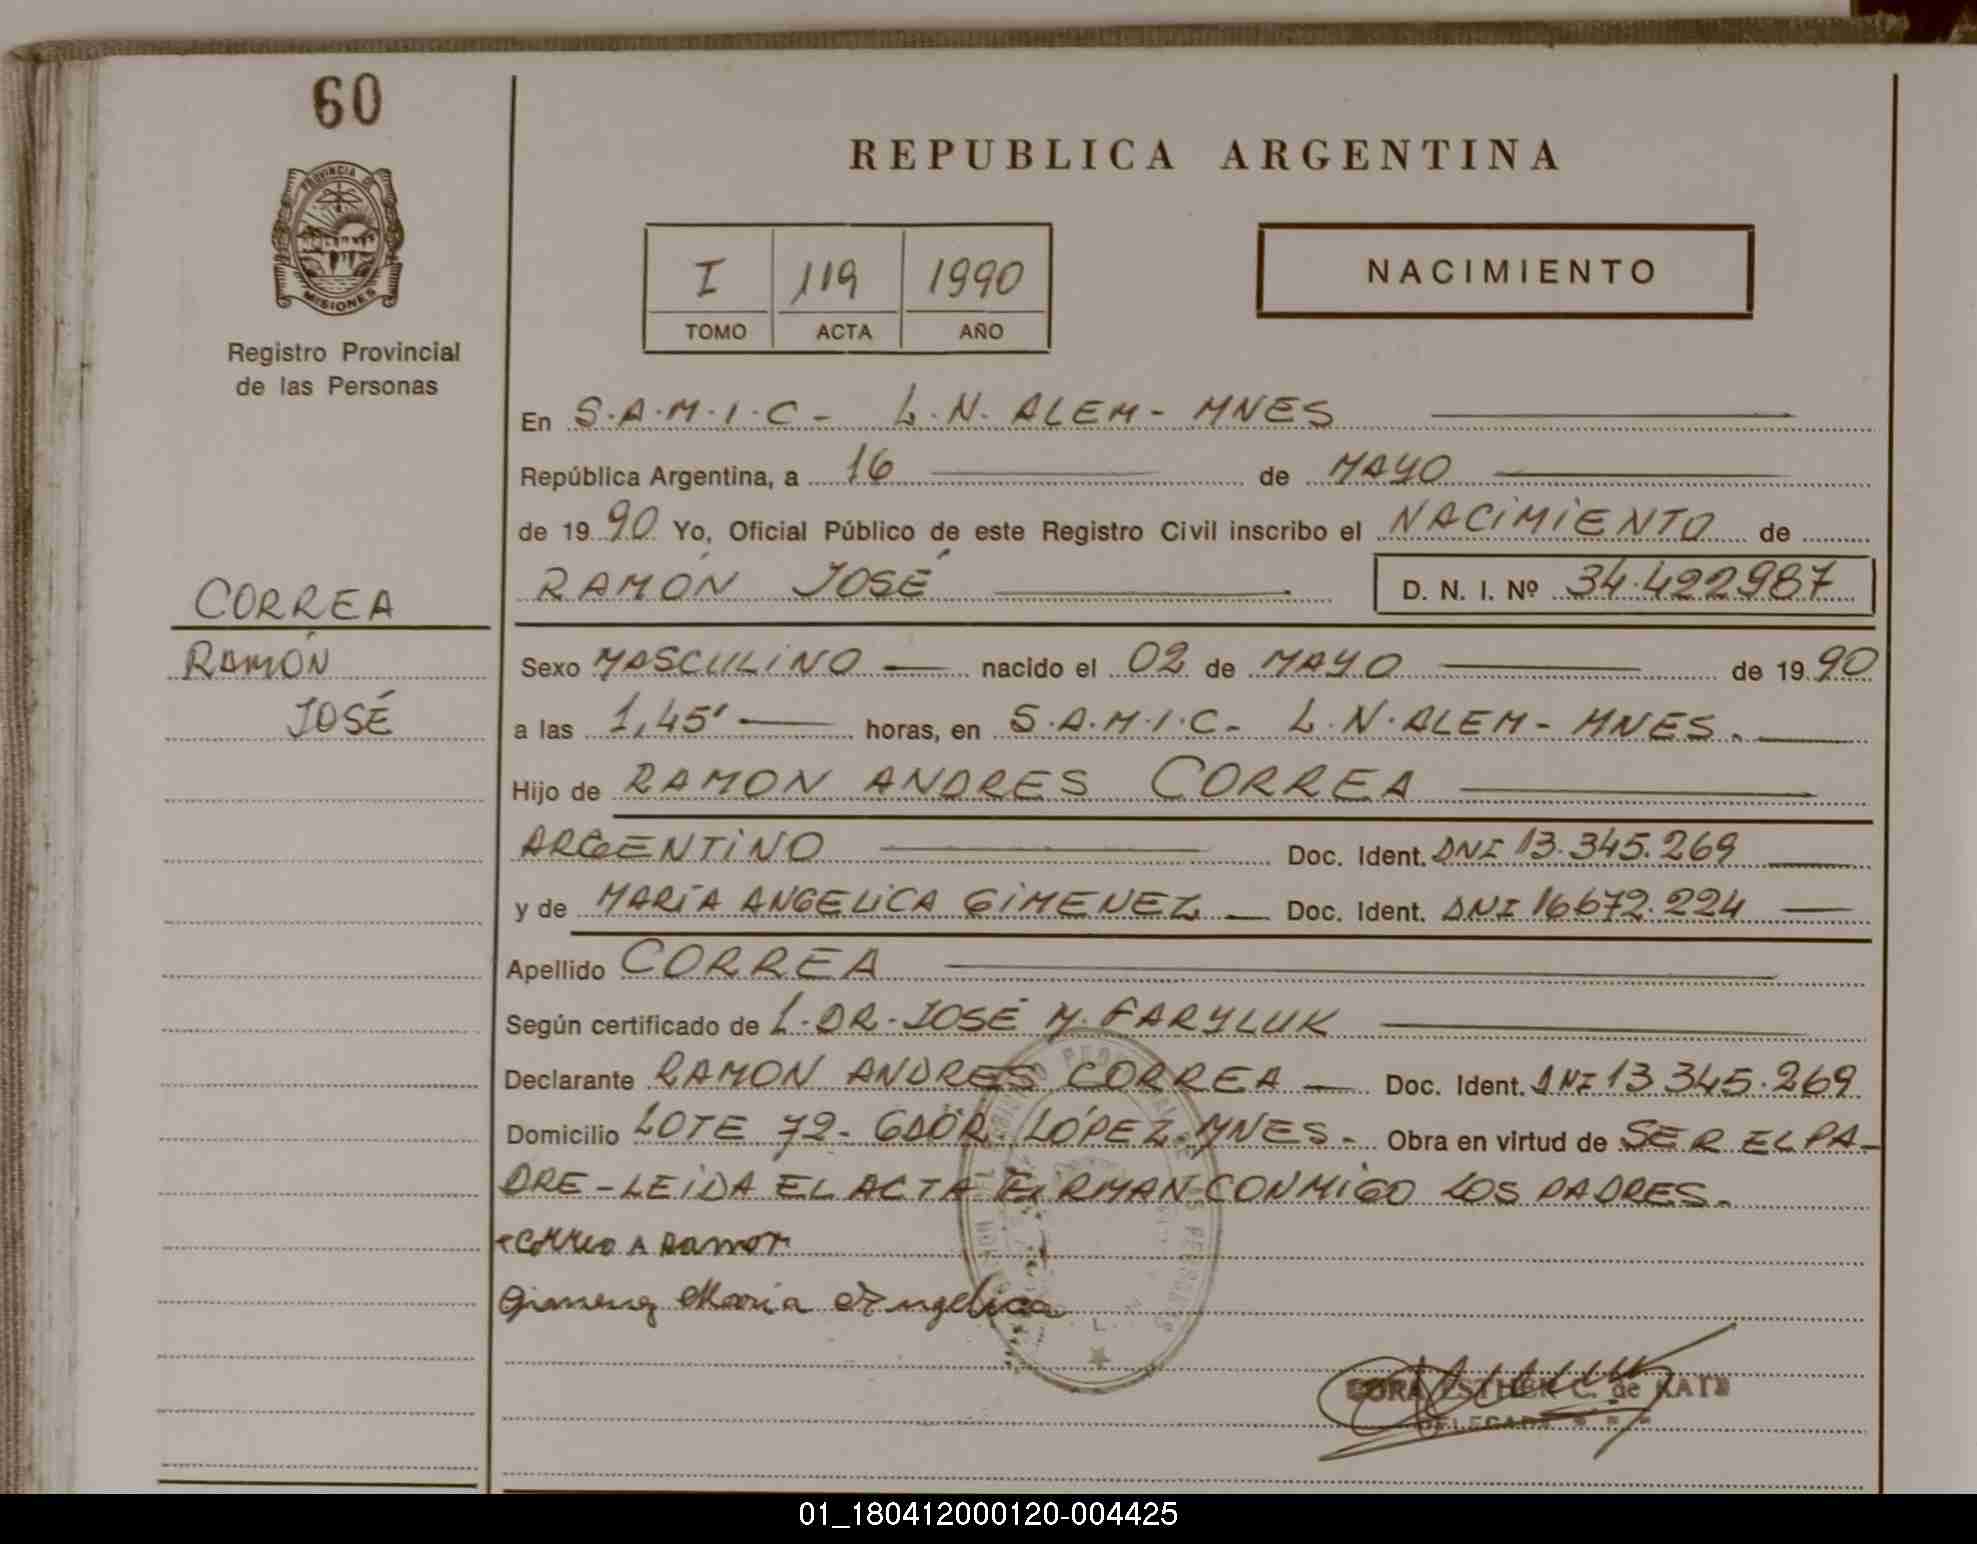 60
PROVINCIA DE
MISIONES
Registro Provincial
de las Personas
CORREA
RAMÓN
JOSÉ
REPUBLICA ARGENTINA
I 119 1990
TOMO ACTA AÑO
NACIMIENTO
En S.A.M.I.C - L.N. ALEM - MNES
República Argentina, a 16 de MAYO
de 1990 Yo, Oficial Público de este Registro Civil inscribo el NACIMIENTO de
RAMÓN JOSÉ D. N. I. Nº 34.422987
Sexo MASCULINO nacido el 02 de MAYO de 1990
a las 1,45' horas, en S.A.M.I.C - L.N. ALEM - MNES.
Hijo de RAMON ANDRES CORREA
ARGENTINO Doc. Ident. DNI 13.345.269
y de MARÍA ANGELICA GIMENEZ Doc. Ident. DNI 16672.224
Apellido CORREA
Según certificado de L. DR. JOSÉ M. FARYLUK
Declarante RAMON ANDRES CORREA Doc. Ident. DNI 13 345.269
Domicilio LOTE 72 - GDOR. LÓPEZ MNES. Obra en virtud de SER EL PA-
DRE - LEIDA EL ACTA FIRMAN CONMIGO LOS PADRES.
Correa A Ramon
Gimenez Maria Angelica
ESTHER C. de KATZ
DELEGADA
01_180412000120-004425